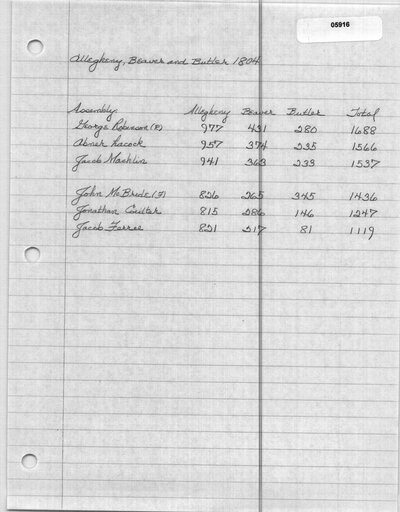 05916
Allegheny, Beaver and Butler 1804
Assembly Allegheny Beaver Butler Total
George Robinson (R) 977 431 280 1688
Abner Lacock 957 374 235 1566
Jacob Mechlin 941 363 233 1537
John McBride (F) 826 265 345 1436
Jonathan Coulter 815 286 146 1247
Jacob Ferree 821 217 81 1119